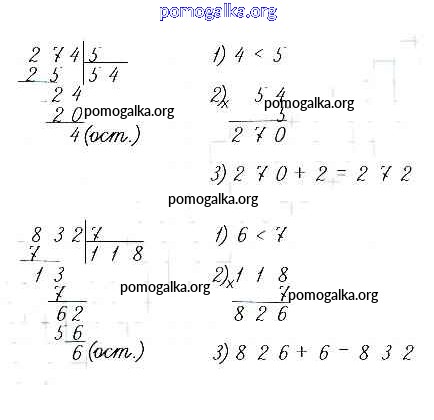 pomogalka.org
2 7 4 5
2 5 5 4
2 4
2 0
4 (ост.)
pomogalka.org
1) 4 < 5
2) 5 4
x 5
pomogalka.org
2 7 0
3) 2 7 0 + 2 = 2 7 2
pomogalka.org
8 3 2 7
7 1 1 8
1 3
7
6 2
5 6
6 (ост.)
pomogalka.org
1) 6 < 7
2) x 1 1 8
7
pomogalka.org
8 2 6
3) 8 2 6 + 6 = 8 3 2